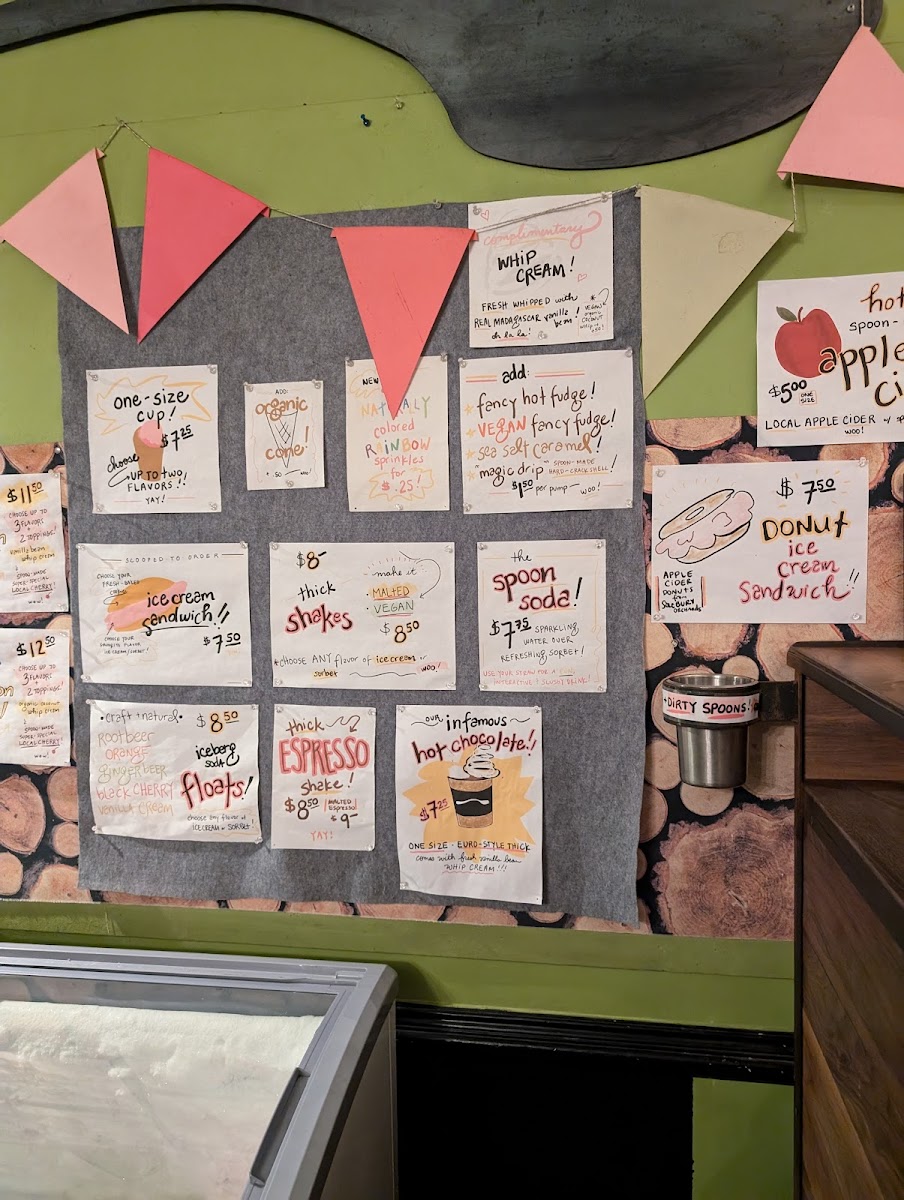 complimentary
WHIP
CREAM!
FRESH WHIPPED with
REAL MADAGASCAR vanilla
bean!
oh la la!
VEGAN
organic
COCONUT
WHIP +
.50!
one-size
cup!
$7.25
choose
UP TO TWO
FLAVORS!!
YAY!
ADD:
organic
cone!
+ .50
NEW
NATURALLY
colored
RAINBOW
sprinkles
for
$.25!
add:
fancy hot fudge!
VEGAN fancy fudge!
sea salt caramel!
"magic drip" SPOON-MADE
HARD-CRACK SHELL!
$1.50 per pump - woo!
hot
spoon-
apple
ci
$5.00 ONE
SIZE
LOCAL APPLE CIDER w/
woo!
$11.50
CHOOSE UP TO
3 FLAVORS
+
2 TOPPINGS!
vanilla bean
whip cream
SPOON-MADE
SUPER-SPECIAL
LOCAL CHERRY!
SCOOPED TO ORDER
CHOOSE YOUR
FRESH-BAKED
COOKIE
ice cream
sandwich!!
CHOOSE YOUR
FAVORITE FLAVOR
ICE CREAM/SORBET!
$7.50
$8-
thick
SHAKES
make it
MALTED
VEGAN
$8.50
*CHOOSE ANY flavor of ice cream or
sorbet
woo!
the
spoon
soda!
$7.75 SPARKLING
WATER OVER
REFRESHING SORBET!
USE YOUR STRAW FOR A FUN,
INTERACTIVE + SLUSHY DRINK!
$7.50
DONUT
ice
cream
Sandwich!!
APPLE
CIDER
DONUTS
from
SOLEBURY
ORCHARDS
$12.50
CHOOSE UP TO
3 FLAVORS
+
2 TOPPINGS!
organic coconut
whip cream
SPOON-MADE
SUPER-SPECIAL
LOCAL CHERRY!
DIRTY SPOONS!
•craft + natural•
ROOT BEER
ORANGE
GINGER BEER
black CHERRY
VANILLA CREAM
$8.50
iceberg
soda
floats!
choose any flavor of
ICE CREAM or SORBET!
thick
ESPRESSO
shake!
$8.50
MALTED
Espresso
$9-
YAY!
OUR infamous
hot chocolate!!
$7.25
ONE SIZE - EURO-STYLE THICK
comes with fresh vanilla bean
WHIP CREAM!!!